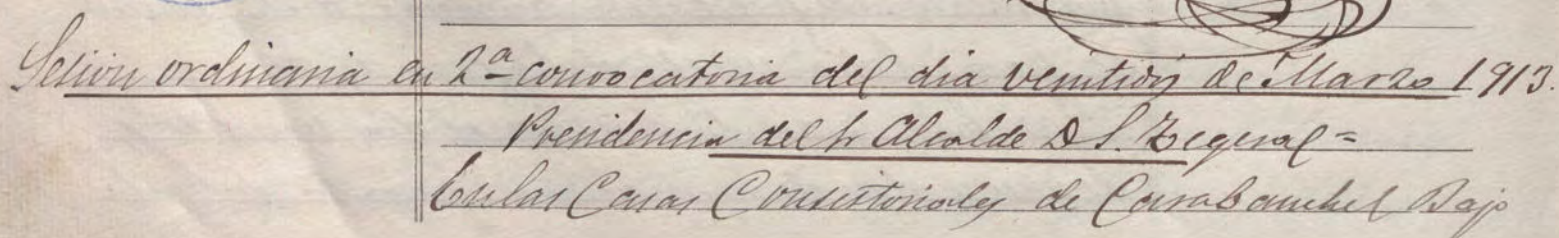 Sesion ordinaria en 2ª convocatoria del dia veintidos de Marzo 1913.
Presidencia del Sr Alcalde D S. =
En las Casas Consistoriales de Carabanchel Bajo